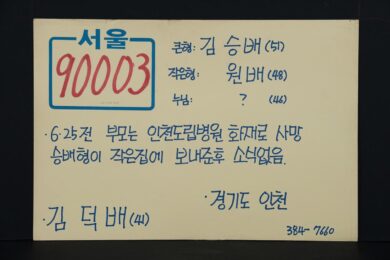 서울
90003
큰형: 김승배 (51)
작은형: 원배 (48)
누님: ? (46)
·6·25전 부모는 인천도립병원 화재로 사망
승배형이 작은집에 보내준후 소식없음.
·경기도 인천
·김덕배 (41)
384-7660